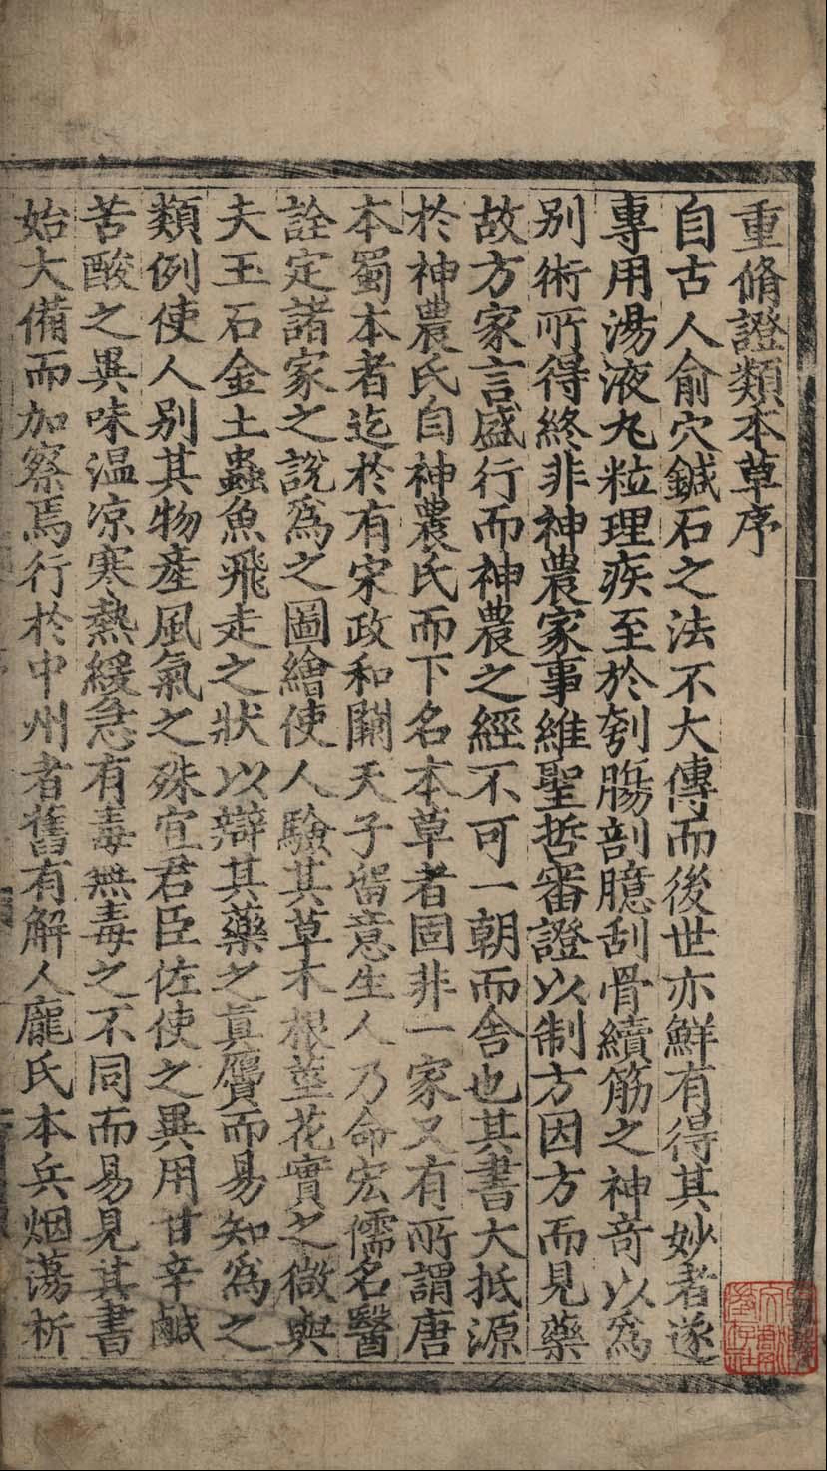 重脩證類本草序
自古人俞穴鍼石之法不大傳而後世亦鮮有得其妙者遂
專用湯液丸粒理疾至於刳腸剖臆刮骨續筋之神奇以爲
别術所得終非神農家事維聖哲審證以制方因方而見藥
故方家言盛行而神農之經不可一朝而舍也其書大抵源
於神農氏自神農氏而下名本草者固非一家又有所謂唐
本蜀本者迄於有宋政和闢天子留意生人乃命宏儒名醫
詮定諸家之說爲之圖繪使人驗其草木根莖花實之微與
夫玉石金土蟲魚飛走之狀以辯其藥之真贋而易知爲之
類例使人别其物產風氣之殊宜君臣佐使之異用甘辛鹹
苦酸之異味温凉寒熱緩急有毒無毒之不同而易見其書
始大備而加察焉行於中州者舊有解人龐氏本兵烟蕩析